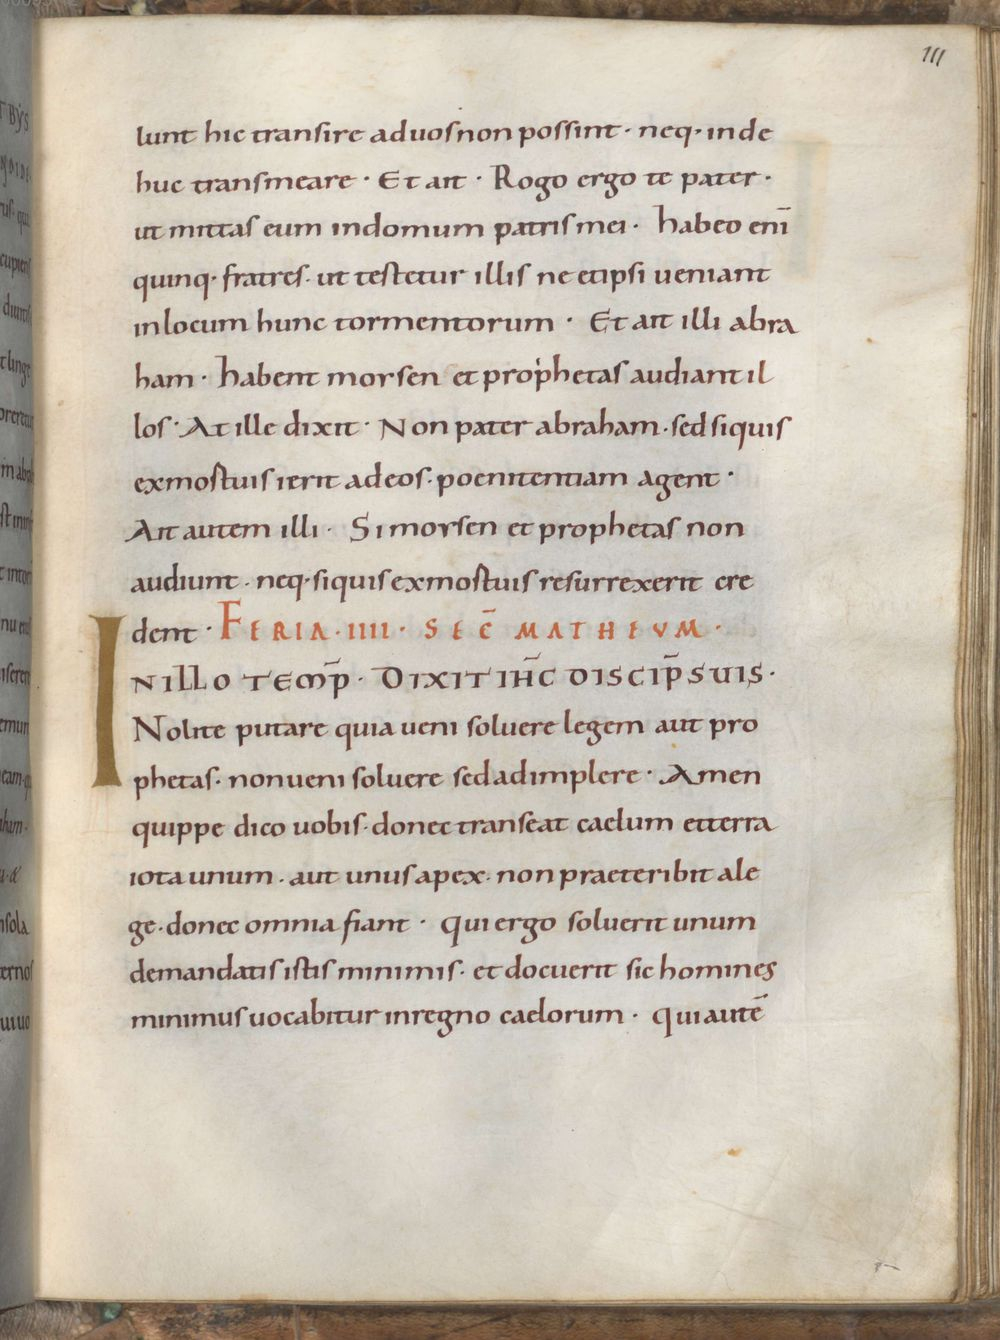 111
lunt hic transire ad uos non possint · neq· inde
huc transmeare · Et ait · Rogo ergo te pater ·
ut mittas eum in domum patris mei · habeo eni̅
quinq· fratres · ut testetur illis ne et ipsi ueniant
in locum hunc tormentorum · Et ait illi abra
ham · habent moysen et prophetas audiant il
los · At ille dixit · Non pater abraham · sed siquis
ex mortuis ierit ad eos · poenitentiam agent ·
Ait autem illi · Si moysen et prophetas non
audiunt · neq· siquis ex mortuis resurrexerit cre
dent · FERIA · IIII · SEC̅ MATHEUM ·
IN ILLO TEMP̅ · DIXIT IH̅C DISCIP̅ SUIS ·
Nolite putare quia ueni soluere legem aut pro
phetas · non ueni soluere sed adimplere · Amen
quippe dico uobis · donec transeat caelum et terra
iota unum · aut unus apex · non praeteribit a le
ge · donec omnia fiant · qui ergo soluerit unum
de mandatis istis minimis · et docuerit sic homines
minimus uocabitur in regno caelorum · qui aute̅